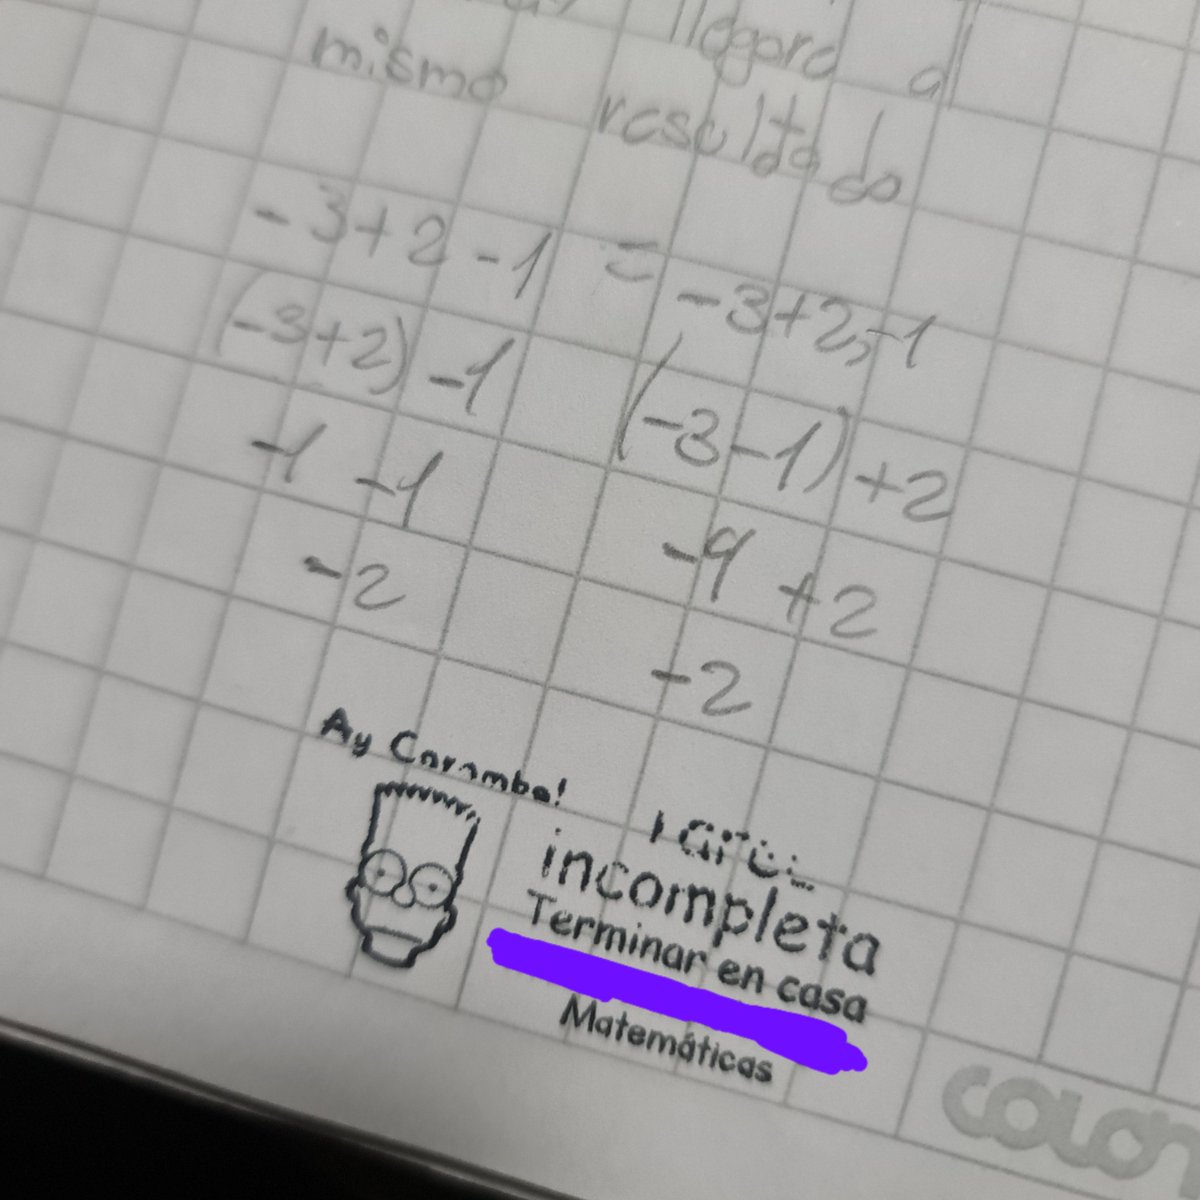 llegara al
mismo resultado
-3+2-1 = -3+2,-1
(-3+2) -1 (-3-1) +2
-1 -1 -4 +2
-2 -2
Ay Caramba!
incompleta
Terminar en casa
Matemáticas